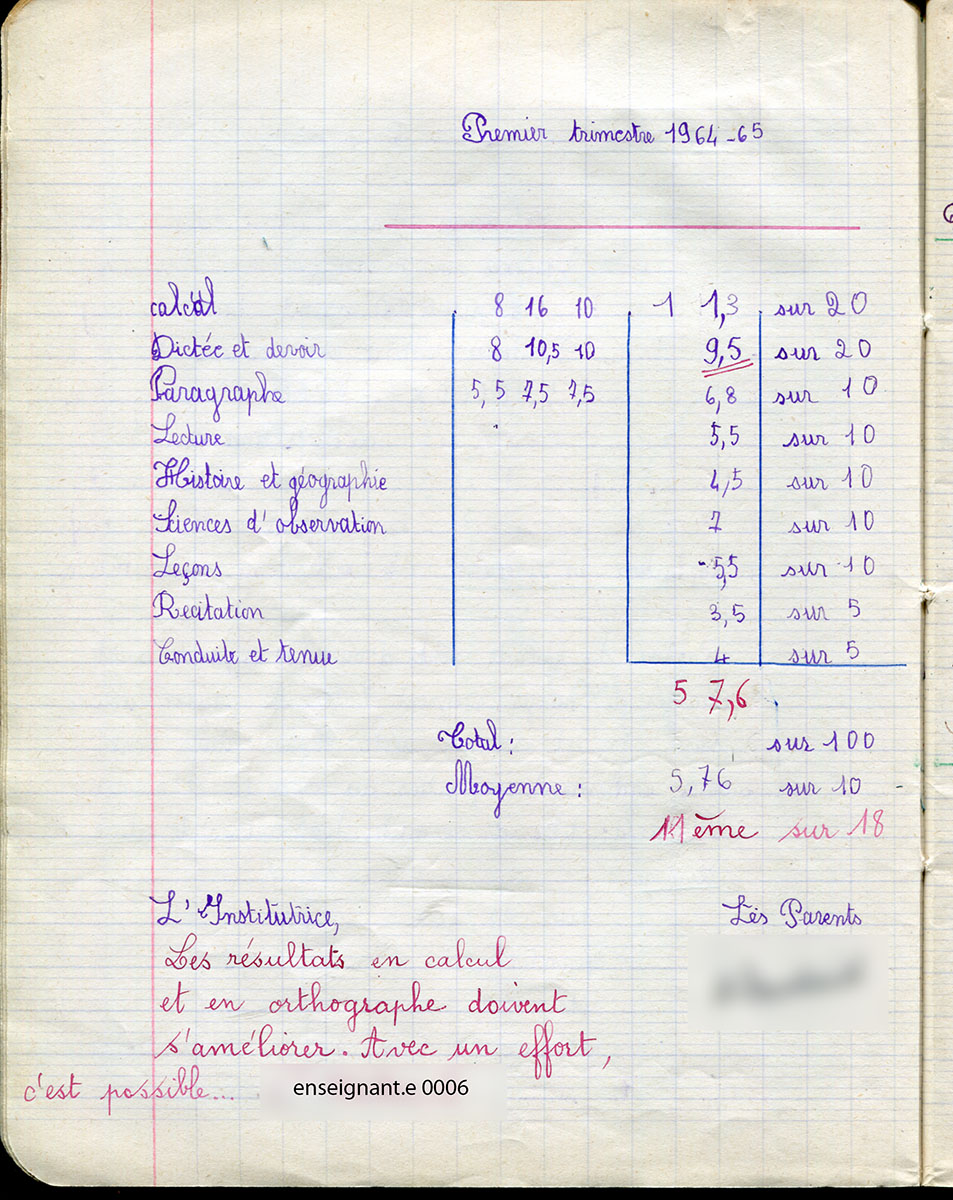 Premier trimestre 1964-65
calcul 8 16 10 11,3 sur 20
Dictée et devoir 8 10,5 10 9,5 sur 20
Paragraphe 5,5 7,5 7,5 6,8 sur 10
Lecture 5,5 sur 10
Histoire et géographie 4,5 sur 10
Sciences d'observation 7 sur 10
Leçons 5,5 sur 10
Recitation 3,5 sur 5
Conduite et tenue 4 sur 5
57,6
Total : sur 100
Moyenne : 5,76 sur 10
11ème sur 18
L'Institutrice, Les Parents
Les résultats en calcul
et en orthographe doivent
s'améliorer. Avec un effort,
c'est possible...
enseignant.e 0006